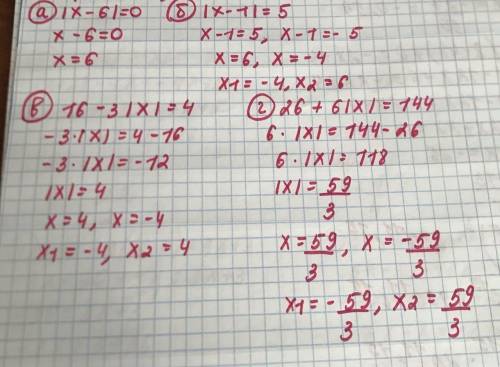 а) |x-6|=0
x-6=0
x=6
б) |x-1|=5
x-1=5, x-1=-5
x=6, x=-4
x1=-4, x2=6
в) 16-3|x|=4
-3·|x|=4-16
-3·|x|=-12
|x|=4
x=4, x=-4
x1=-4, x2=4
г) 26+6|x|=144
6·|x|=144-26
6·|x|=118
|x|=59/3
x=59/3, x=-59/3
x1=-59/3, x2=59/3